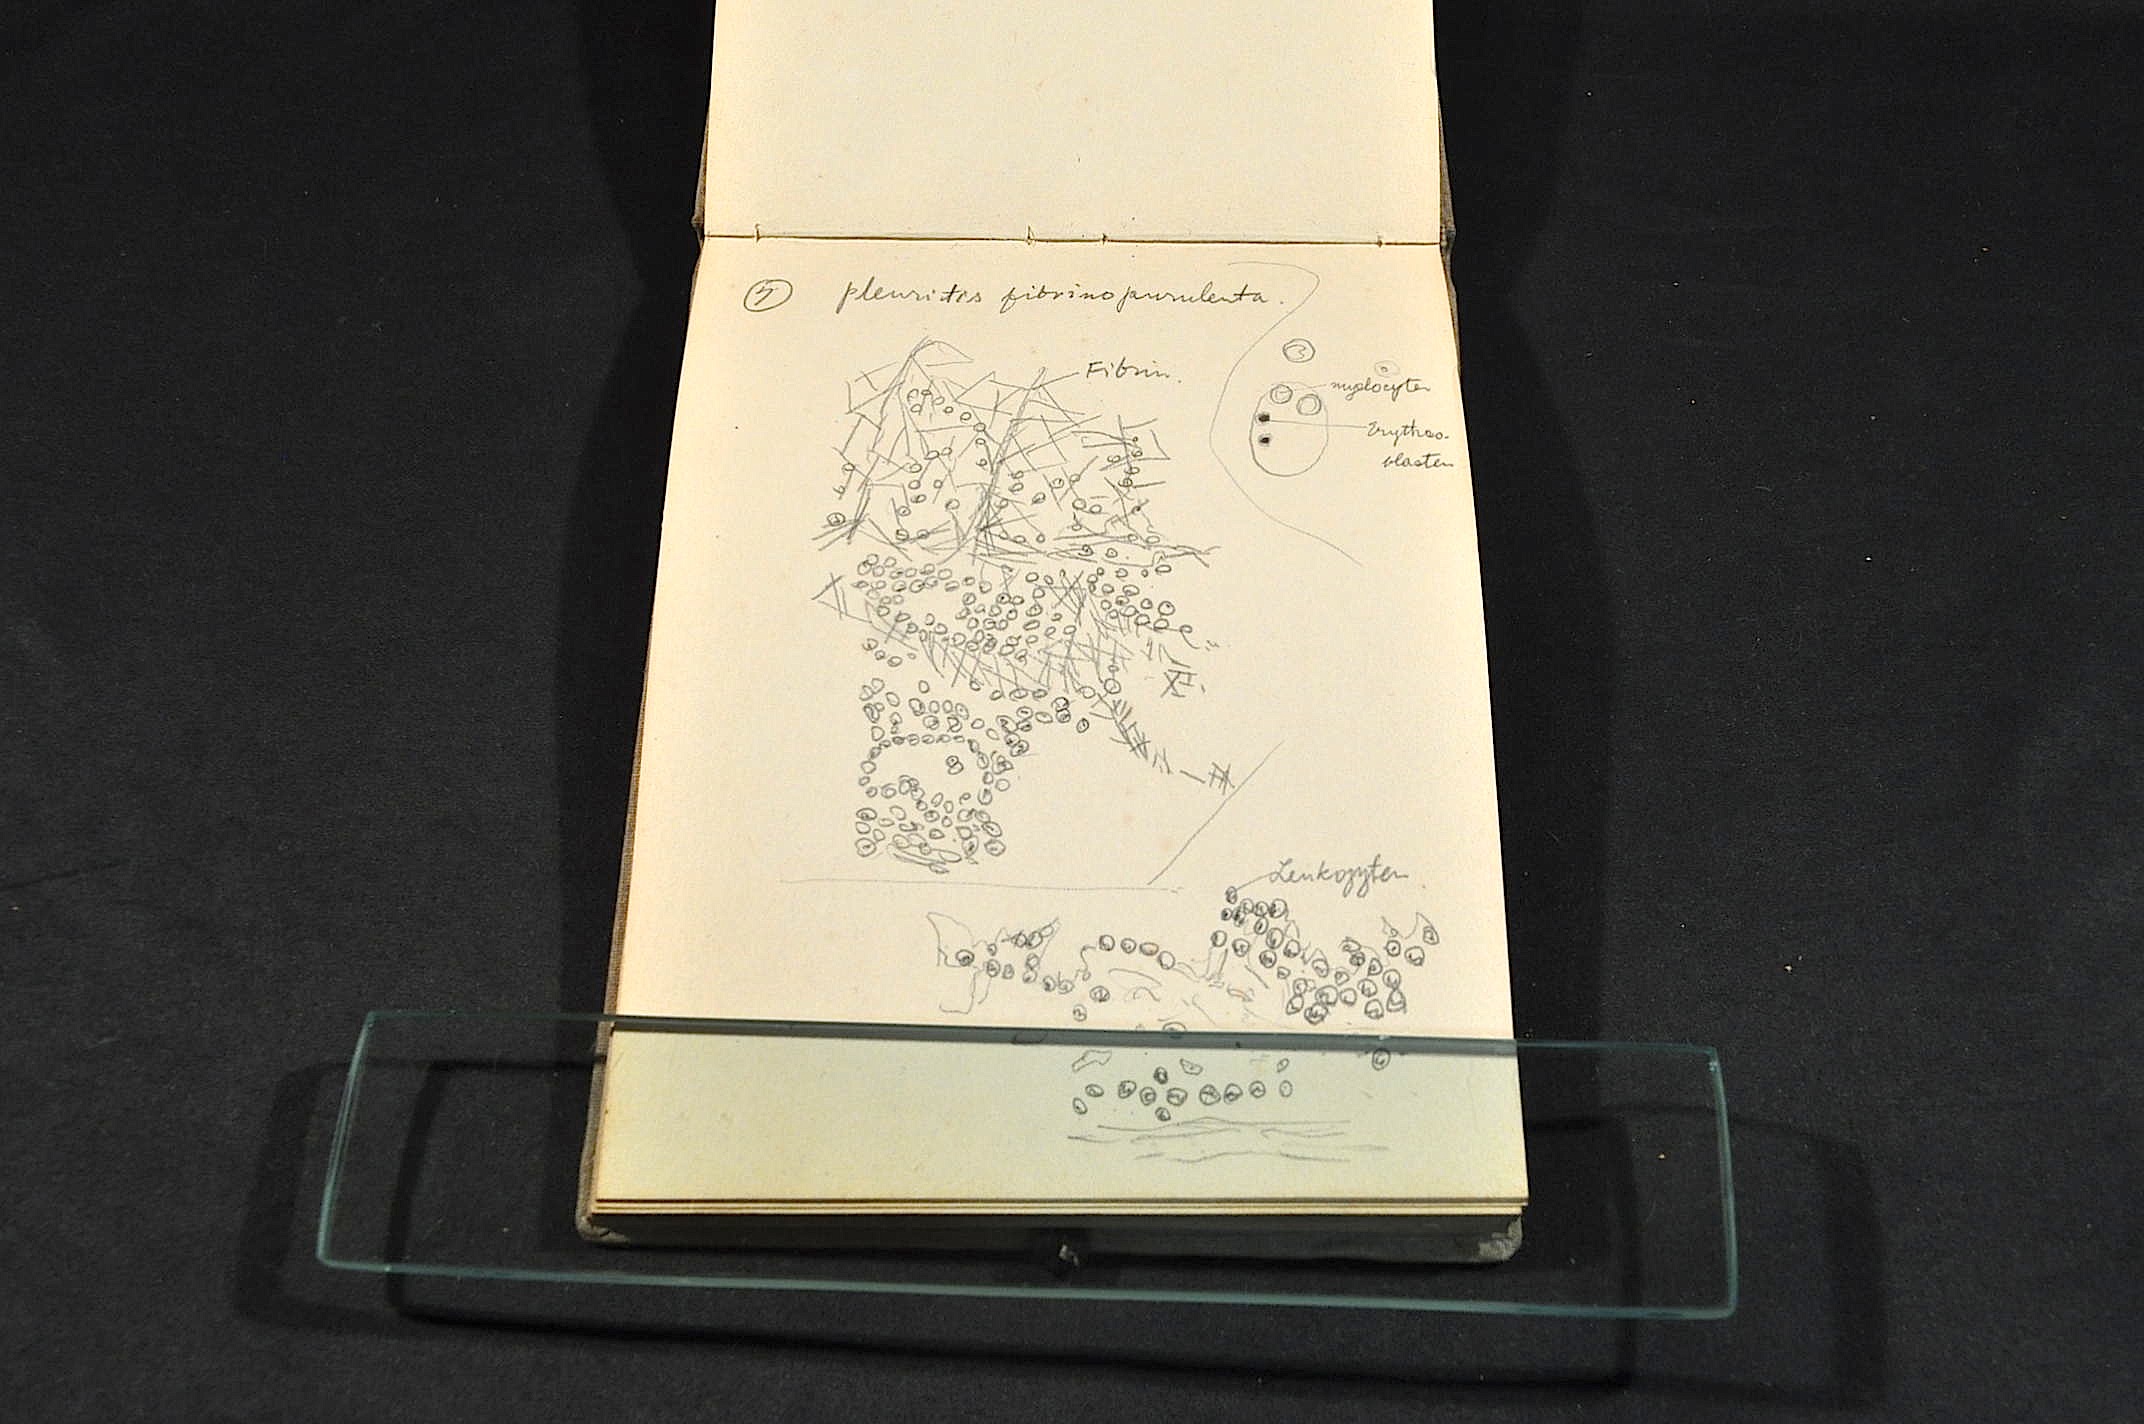 5 pleuritis fibrinopurulenta.
Fibrin.
myelocyten
Erythro-
blasten
Leukozyten